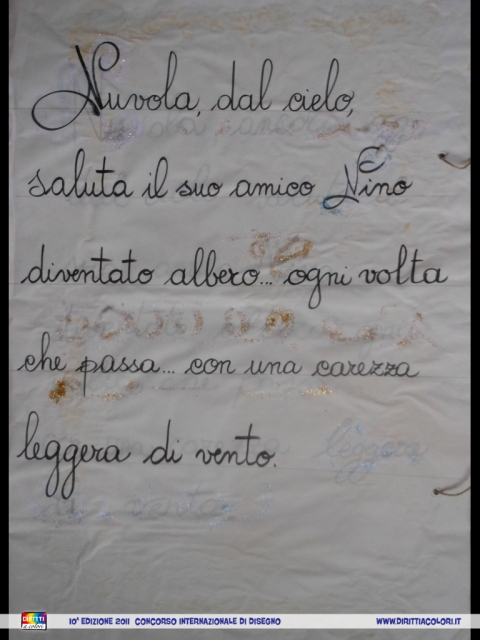 Nuvola, dal cielo,
saluta il suo amico Nino
diventato albero... ogni volta
che passa... con una carezza
leggera di vento.
leggera
DIRITTI a colori
10ª EDIZIONE 2011 CONCORSO INTERNAZIONALE DI DISEGNO
WWW.DIRITTIACOLORI.IT